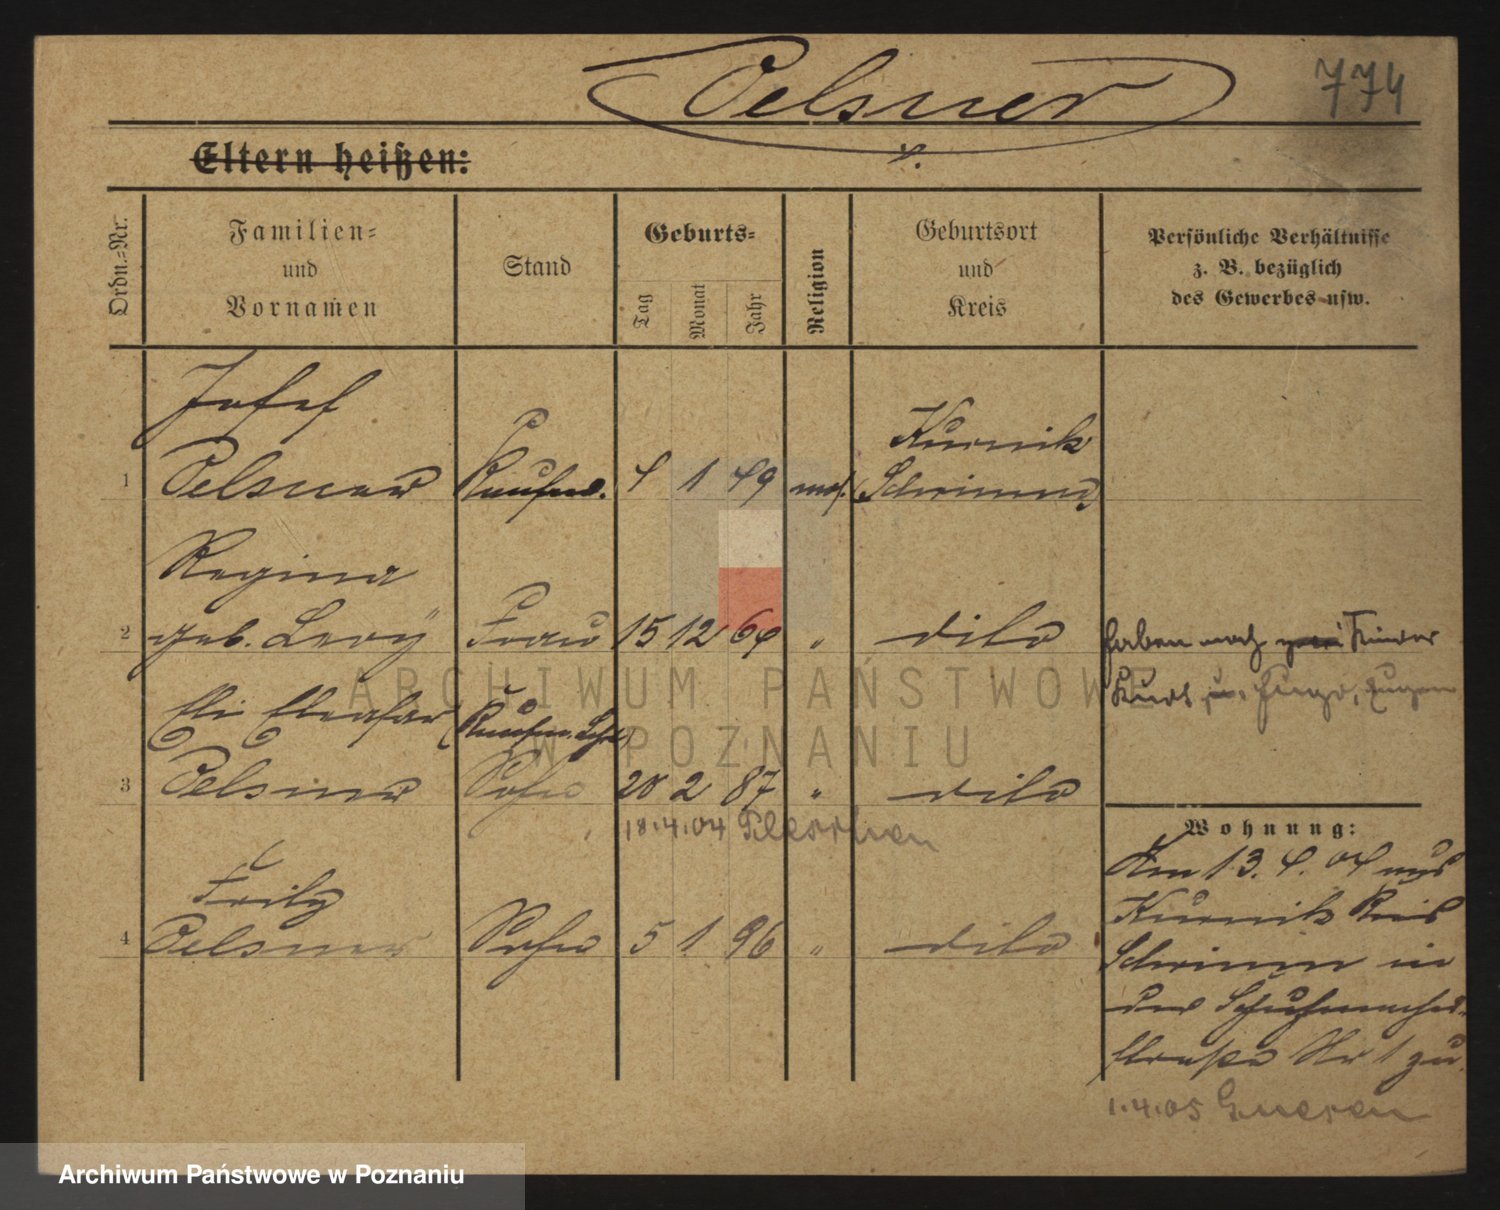 Oelsner
774
Eltern heißen:
Ordn.-Nr.
Familien-
und
Vornamen
Stand
Geburts-
Tag
Monat
Jahr
Religion
Geburtsort
und
Kreis
Persönliche Verhältnisse
z. B. bezüglich
des Gewerbes usw.
Josef
Kurnik
1 Oelsner Kaufm. 4 1 49 mos. Schrimm
Regina
2 geb. Levy Frau 15 12 64 " dito haben noch zwei Kinder
Kurt u. Hugo, Eugen
Eli Eleasar (Kaufm. Lehrl.)
3 Oelsner Sohn 20 2 87 " dito
18.4.04 Pleschen
Wohnung:
Am 13.4.04 aus
Fritz
Kurnik Kreis
4 Oelsner Sohn 5 1 96 " dito
Schrimm in
der Schuhmacher-
straße Nr 1 zu.
1.4.05 Gnesen
ARCHIWUM PAŃSTWOWE
W POZNANIU
Archiwum Państwowe w Poznaniu